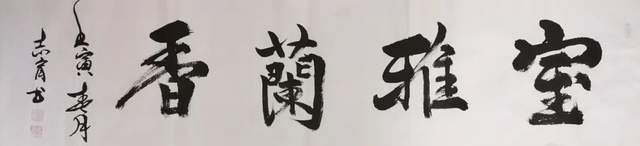 室雅蘭香
壬寅春月
志育书